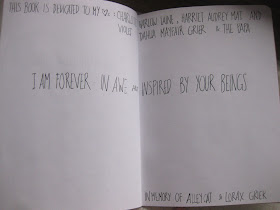 THIS BOOK IS DEDICATED TO MY
WARLOW DUNE, HARRIET AUDREY MAT AND
VIOLET DAHLIA MAYFAIR GRIER & THE
I AM FOREVER IN AWE AND INSPIRED BY YOUR BEINGS
IN MEMORY OF ALLEYCAT & LORAX GRIER